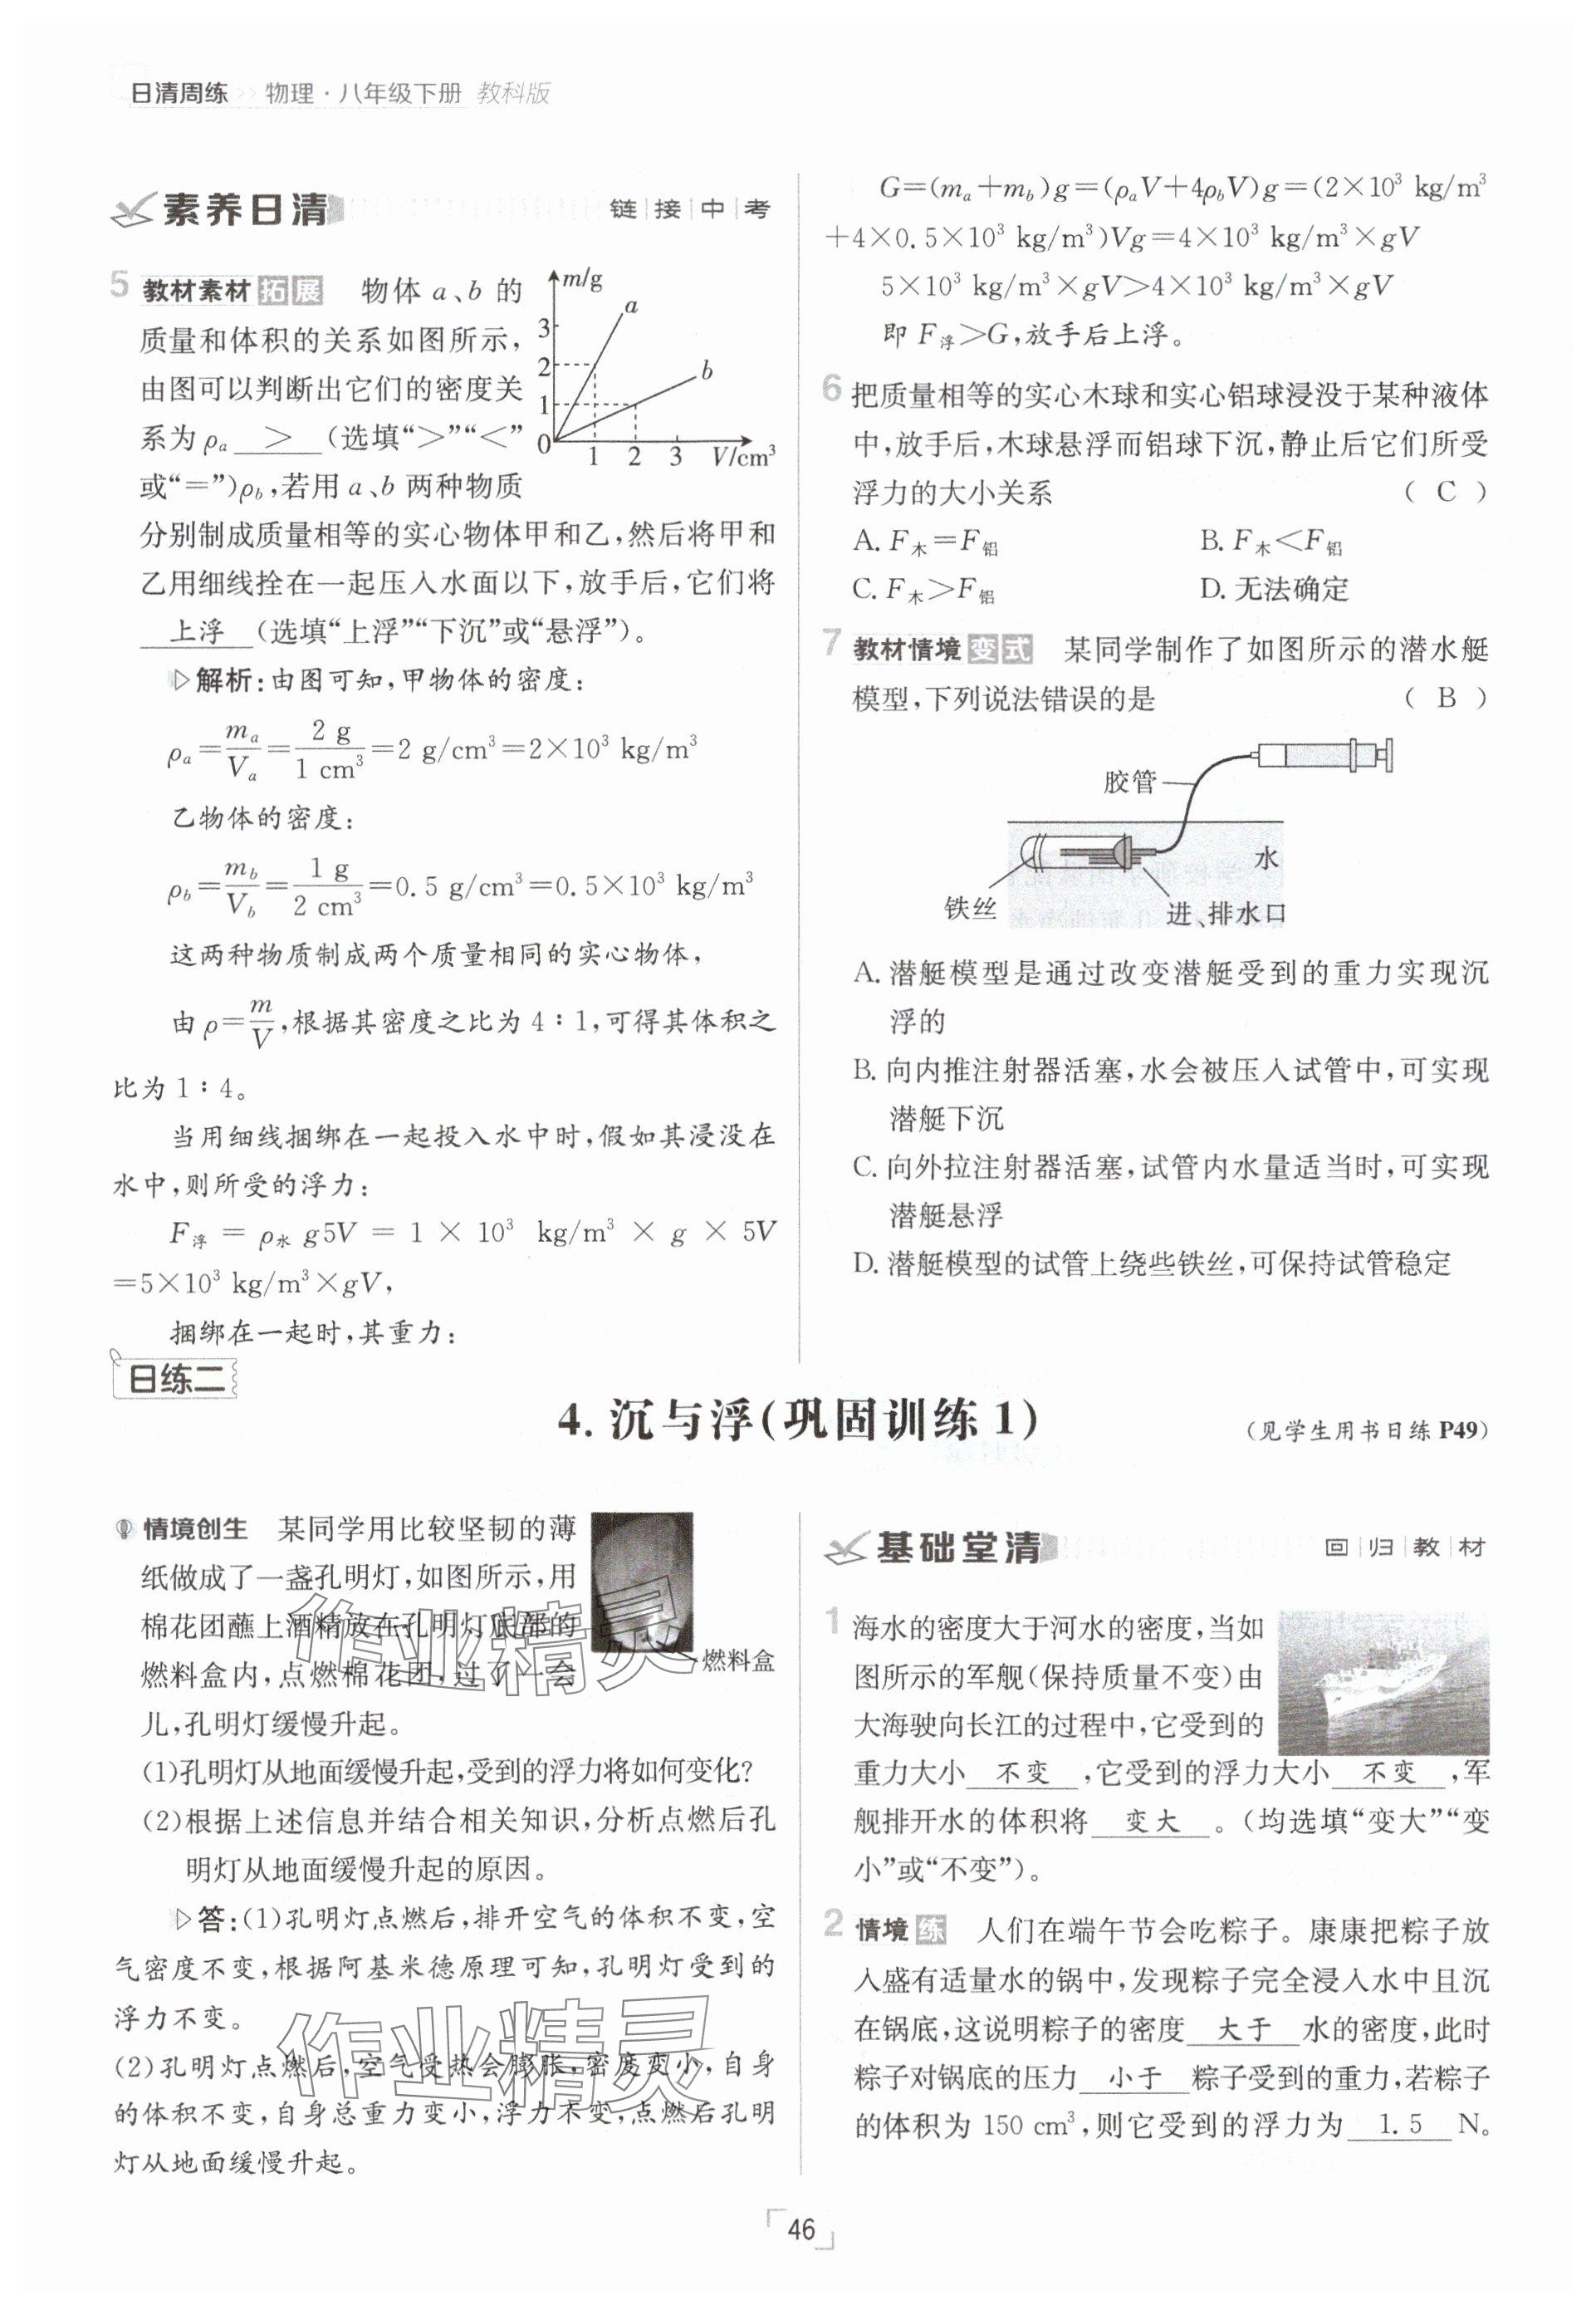 日清周练 >> 物理·八年级下册 教科版
素养日清 链|接|中|考
5 教材素材 拓展 物体 a、b 的
质量和体积的关系如图所示,
由图可以判断出它们的密度关
系为 ρa > (选填“>”“<”
或“=”)ρb,若用 a、b 两种物质
分别制成质量相等的实心物体甲和乙,然后将甲和
乙用细线拴在一起压入水面以下,放手后,它们将
上浮 (选填“上浮”“下沉”或“悬浮”)。
m/g
a
b
3
2
1
0
1 2 3 V/cm³
▷解析:由图可知,甲物体的密度:
ρa=ma/Va=2 g/1 cm³=2 g/cm³=2×10³ kg/m³
乙物体的密度:
ρb=mb/Vb=1 g/2 cm³=0.5 g/cm³=0.5×10³ kg/m³
这两种物质制成两个质量相同的实心物体,
由 ρ=m/V,根据其密度之比为 4∶1,可得其体积之
比为 1∶4。
当用细线捆绑在一起投入水中时,假如其浸没在
水中,则所受的浮力:
F浮 = ρ水 g5V = 1 × 10³ kg/m³ × g × 5V
=5×10³ kg/m³×gV,
捆绑在一起时,其重力:
G=(ma+mb)g=(ρaV+4ρbV)g=(2×10³ kg/m³
+4×0.5×10³ kg/m³)Vg=4×10³ kg/m³×gV
5×10³ kg/m³×gV>4×10³ kg/m³×gV
即 F浮>G,放手后上浮。
6 把质量相等的实心木球和实心铝球浸没于某种液体
中,放手后,木球悬浮而铝球下沉,静止后它们所受
浮力的大小关系 ( C )
A. F木=F铝 B. F木<F铝
C. F木>F铝 D. 无法确定
7 教材情境 变式 某同学制作了如图所示的潜水艇
模型,下列说法错误的是 ( B )
胶管
水
铁丝
进、排水口
A. 潜艇模型是通过改变潜艇受到的重力实现沉
浮的
B. 向内推注射器活塞,水会被压入试管中,可实现
潜艇下沉
C. 向外拉注射器活塞,试管内水量适当时,可实现
潜艇悬浮
D. 潜艇模型的试管上绕些铁丝,可保持试管稳定
日练二
4. 沉与浮(巩固训练 1)
(见学生用书日练 P49)
情境创生 某同学用比较坚韧的薄
纸做成了一盏孔明灯,如图所示,用
棉花团蘸上酒精放在孔明灯底部的
燃料盒内,点燃棉花团,过了一会
儿,孔明灯缓慢升起。
燃料盒
(1)孔明灯从地面缓慢升起,受到的浮力将如何变化?
(2)根据上述信息并结合相关知识,分析点燃后孔
明灯从地面缓慢升起的原因。
▷答:(1)孔明灯点燃后,排开空气的体积不变,空
气密度不变,根据阿基米德原理可知,孔明灯受到的
浮力不变。
(2)孔明灯点燃后,空气受热会膨胀,密度变小,自身
的体积不变,自身总重力变小,浮力不变,点燃后孔明
灯从地面缓慢升起。
作业精灵
作业精灵
基础堂清 回|归|教|材
1 海水的密度大于河水的密度,当如
图所示的军舰(保持质量不变)由
大海驶向长江的过程中,它受到的
重力大小 不变 ,它受到的浮力大小 不变 ,军
舰排开水的体积将 变大 。(均选填“变大”“变
小”或“不变”)。
2 情境 练 人们在端午节会吃粽子。康康把粽子放
入盛有适量水的锅中,发现粽子完全浸入水中且沉
在锅底,这说明粽子的密度 大于 水的密度,此时
粽子对锅底的压力 小于 粽子受到的重力,若粽子
的体积为 150 cm³,则它受到的浮力为 1.5 N。
46